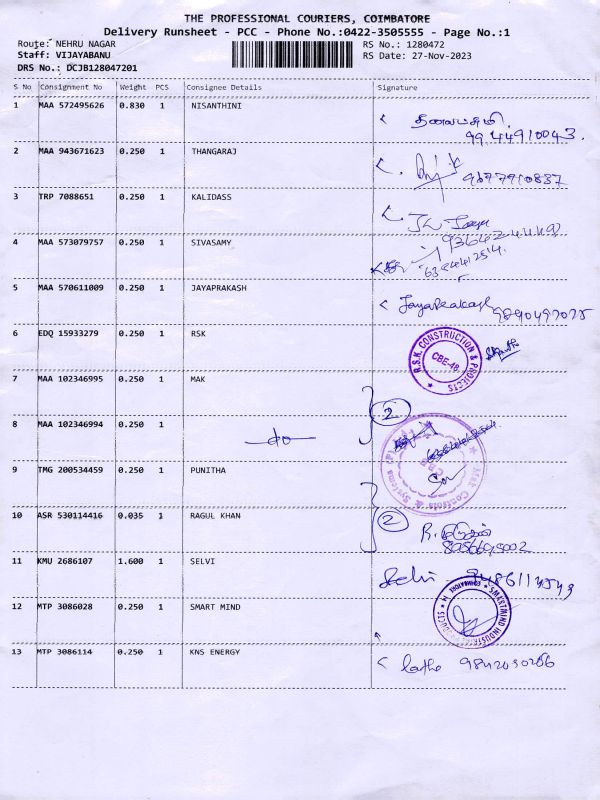 THE PROFESSIONAL COURIERS, COIMBATORE
Delivery Runsheet - PCC - Phone No.:0422-3505555 - Page No.:1
Route: NEHRU NAGAR RS No.: 1280472
Staff: VIJAYABANU RS Date: 27-Nov-2023
DRS No.: DCJB128047201
S No Consignment No Weight PCS Consignee Details Signature
1 MAA 572495626 0.830 1 NISANTHINI
9944910043
2 MAA 943671623 0.250 1 THANGARAJ
9677910837
3 TRP 7088651 0.250 1 KALIDASS
4 MAA 573079757 0.250 1 SIVASAMY
5 MAA 570611009 0.250 1 JAYAPRAKASH
Jayaprakash
6 EDQ 15933279 0.250 1 RSK
R.S.K. CONSTRUCTION & PROJECTS
CBE-48.
7 MAA 102346995 0.250 1 MAK
2
8 MAA 102346994 0.250 1
Mak Controls & Systems (P)
9 TMG 200534459 0.250 1 PUNITHA
10 ASR 530114416 0.035 1 RAGUL KHAN
2
11 KMU 2686107 1.600 1 SELVI
Selvi
12 MTP 3086028 0.250 1 SMART MIND
SMARTMIND
13 MTP 3086114 0.250 1 KNS ENERGY
9842050266